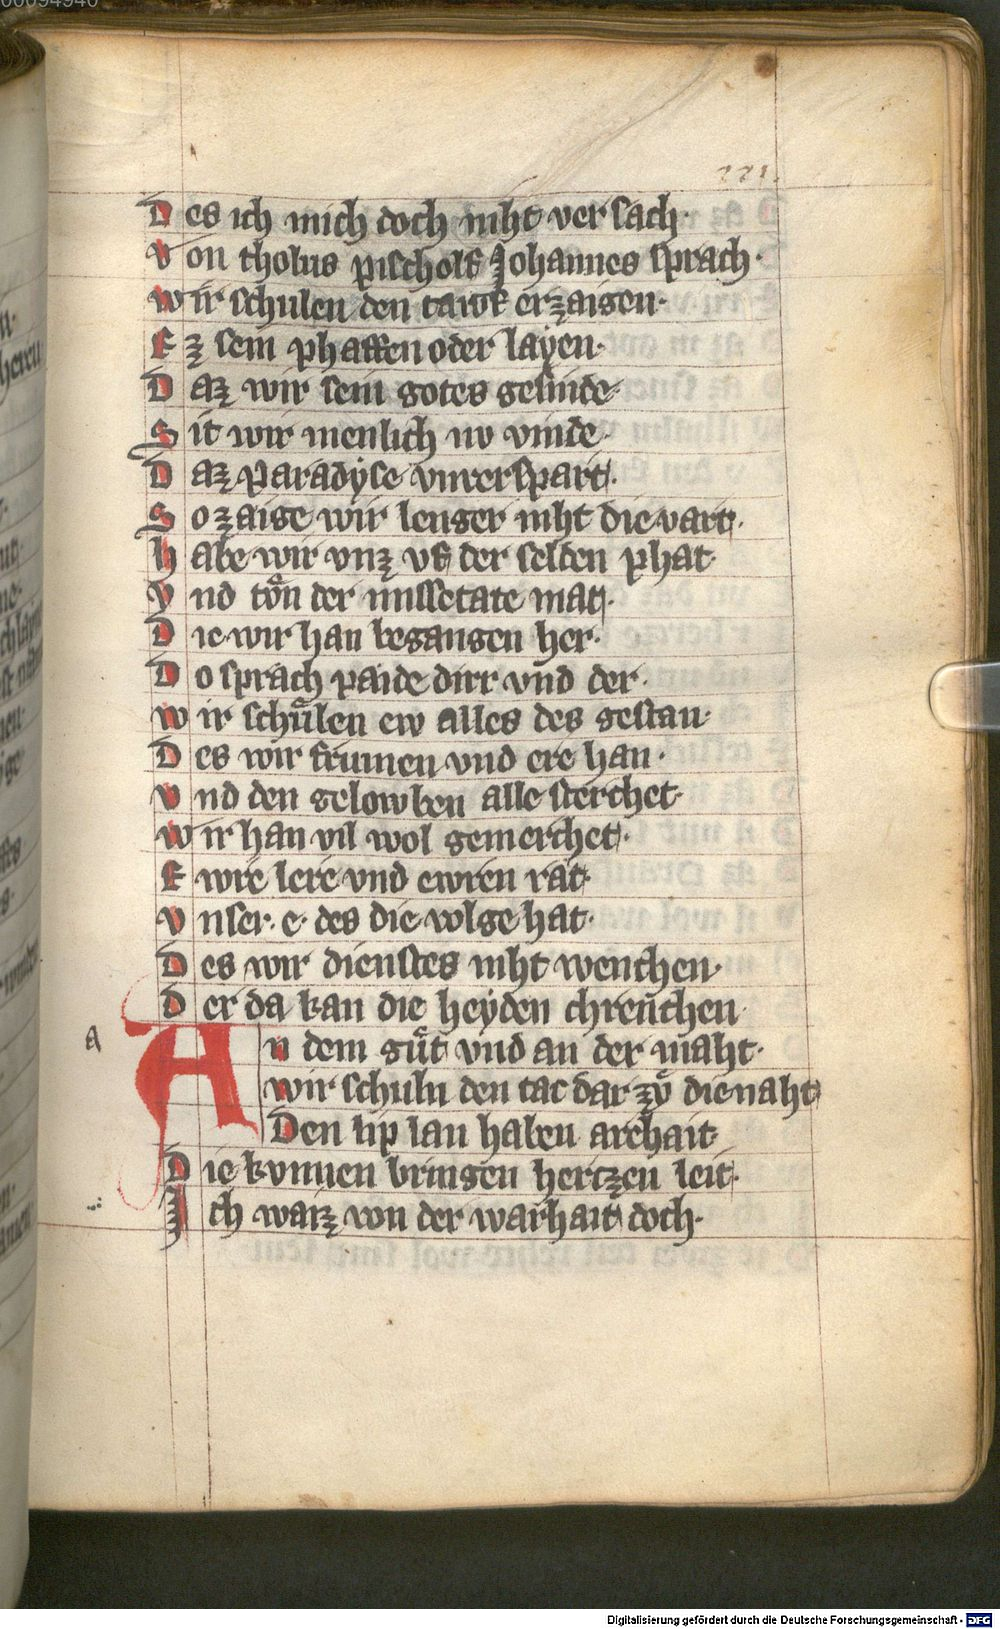 221.
Des ich mich doch niht ver sach·
Von tholus pischolf Johannes sprach·
wir schulen den tawf erzaigen·
Ez sein phaffen oder layen·
Daz wir sein gotes gesinde·
Sit wir menlich nv vinde·
Daz paradyse vnverspart·
So zaige wir lenger niht die vart·
habe wir vnz vf der selden phat·
Vnd toͤn der missetate mat·
Die wir han begangen her·
Do sprach paide dirr vnd der·
wir schuͤlen ew alles des gestan·
Des wir frumen vnd ere han·
vnd den gelowben alle sterchet·
wir han vil wol gemerchet·
Ewre lere vnd ewren rat·
vnser· e· des die volge hat·
Des wir dienstes niht wenchen·
Der da kan die heyden chrenchen·
A
An dem guͤt vnd an der maht·
wir schuln den tac dar zuͦ die naht
Den lip lan haben arebait·
Die kvnnen bringen hertzen leit·
Ich waiz von der warhait doch·
Digitalisierung gefördert durch die Deutsche Forschungsgemeinschaft - DFG